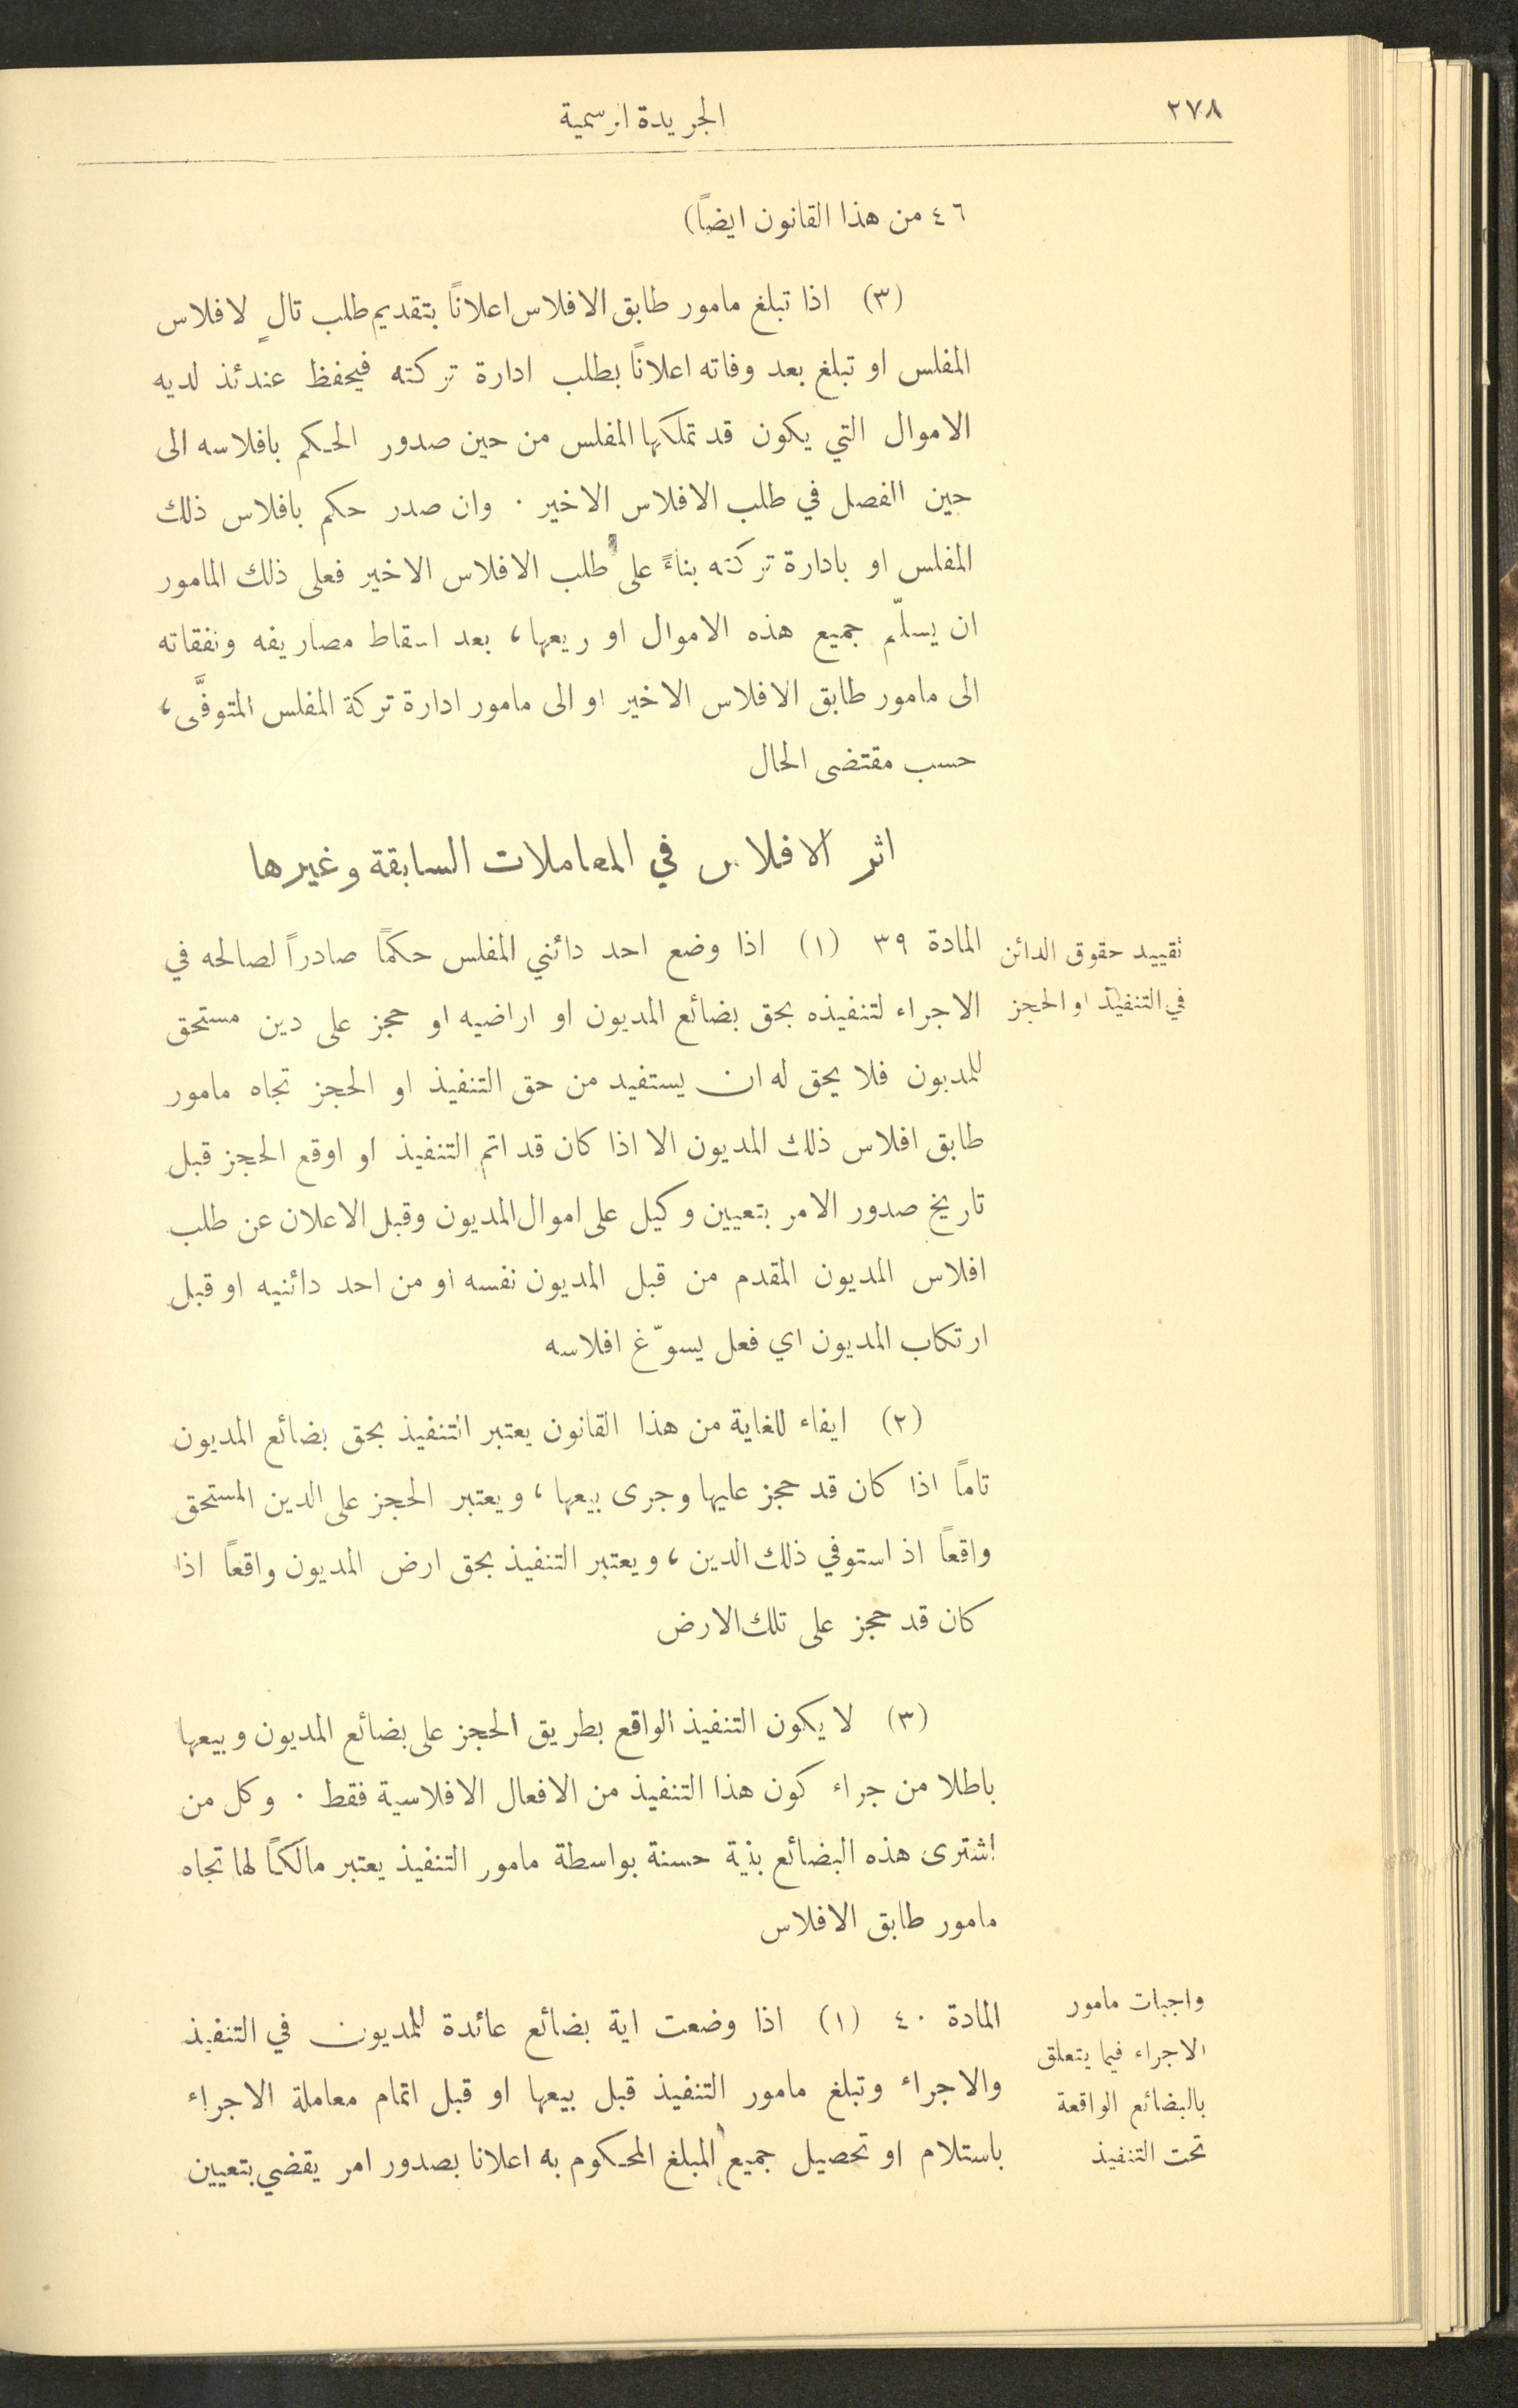 ٢٧٨
الجريدة الرسمية
٤٦ من هذا القانون ايضاً)
(٣) اذا تبلغ مامور طابق الافلاس اعلاناً بتقديم طلب تالٍ لافلاس
المفلس او تبلغ بعد وفاته اعلاناً بطلب ادارة تركته فيحفظ عندئذ لديه
الاموال التي يكون قد تملكها المفلس من حين صدور الحكم بافلاسه الى
حين الفصل في طلب الافلاس الاخير . وان صدر حكم بافلاس ذلك
المفلس او بادارة تركته بناءً على طلب الافلاس الاخير فعلى ذلك المامور
ان يسلّم جميع هذه الاموال او ريعها، بعد اسقاط مصاريفه ونفقاته
الى مامور طابق الافلاس الاخير او الى مامور ادارة تركة المفلس المتوفَّى،
حسب مقتضى الحال
اثر الافلاس في المعاملات السابقة وغيرها
تقييد حقوق الدائن
في التنفيذ او الحجز
المادة ٣٩ (١) اذا وضع احد دائني المفلس حكماً صادراً لصالحه في
الاجراء لتنفيذه بحق بضائع المديون او اراضيه او حجز على دين مستحق
للمديون فلا يحق له ان يستفيد من حق التنفيذ او الحجز تجاه مامور
طابق افلاس ذلك المديون الا اذا كان قد اتم التنفيذ او اوقع الحجز قبل
تاريخ صدور الامر بتعيين وكيل على اموال المديون وقبل الاعلان عن طلب
افلاس المديون المقدم من قبل المديون نفسه او من احد دائنيه او قبل
ارتكاب المديون اي فعل يسوّغ افلاسه
(٢) ايفاء للغاية من هذا القانون يعتبر التنفيذ بحق بضائع المديون
تاماً اذا كان قد حجز عليها وجرى بيعها، ويعتبر الحجز على الدين المستحق
واقعاً اذ استوفي ذلك الدين، ويعتبر التنفيذ بحق ارض المديون واقعاً اذا
كان قد حجز على تلك الارض
(٣) لا يكون التنفيذ الواقع بطريق الحجز على بضائع المديون وبيعها
باطلا من جراء كون هذا التنفيذ من الافعال الافلاسية فقط . وكل من
اشترى هذه البضائع بنية حسنة بواسطة مامور التنفيذ يعتبر مالكاً لها تجاه
مامور طابق الافلاس
واجبات مامور
الاجراء فيما يتعلق
بالبضائع الواقعة
تحت التنفيذ
المادة ٤٠ (١) اذا وضعت اية بضائع عائدة للمديون في التنفيذ
والاجراء وتبلغ مامور التنفيذ قبل بيعها او قبل اتمام معاملة الاجراء
باستلام او تحصيل جميع المبلغ المحكوم به اعلانا بصدور امر يقضي بتعيين